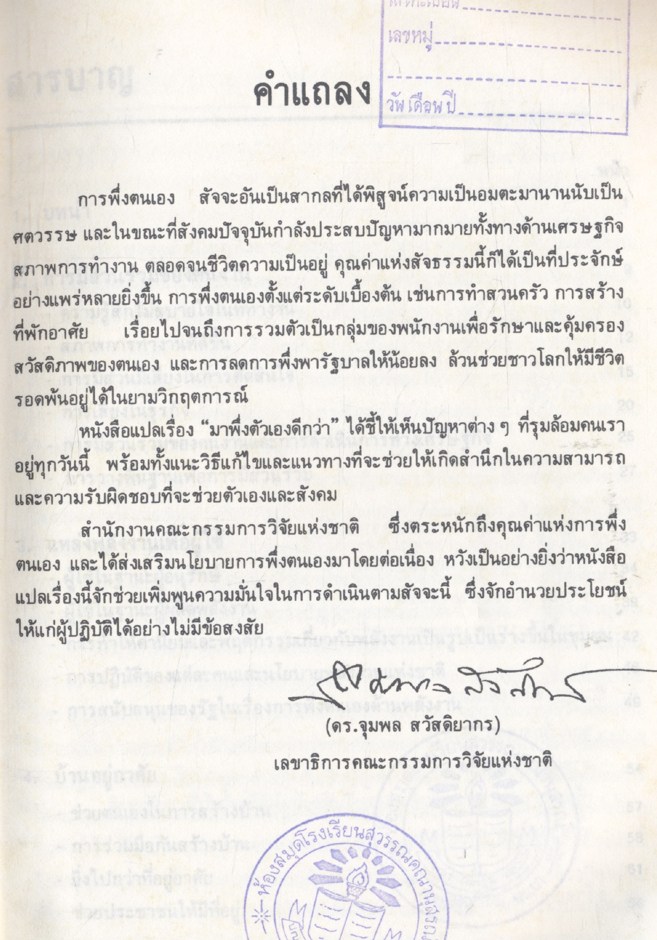 เลขหมู่
วัน เดือน ปี
คำแถลง
การพึ่งตนเอง สัจจะอันเป็นสากลที่ได้พิสูจน์ความเป็นอมตะมานานนับเป็น
ศตวรรษ และในขณะที่สังคมปัจจุบันกำลังประสบปัญหามากมายทั้งทางด้านเศรษฐกิจ
สภาพการทำงาน ตลอดจนชีวิตความเป็นอยู่ คุณค่าแห่งสัจธรรมนี้ก็ได้เป็นที่ประจักษ์
อย่างแพร่หลายยิ่งขึ้น การพึ่งตนเองตั้งแต่ระดับเบื้องต้น เช่นการทำสวนครัว การสร้าง
ที่พักอาศัย เรื่อยไปจนถึงการรวมตัวเป็นกลุ่มของพนักงานเพื่อรักษาและคุ้มครอง
สวัสดิภาพของตนเอง และการลดการพึ่งพารัฐบาลให้น้อยลง ล้วนช่วยชาวโลกให้มีชีวิต
รอดพ้นอยู่ได้ในยามวิกฤตการณ์
หนังสือแปลเรื่อง “มาพึ่งตัวเองดีกว่า” ได้ชี้ให้เห็นปัญหาต่าง ๆ ที่รุมล้อมคนเรา
อยู่ทุกวันนี้ พร้อมทั้งแนะวิธีแก้ไขและแนวทางที่จะช่วยให้เกิดสำนึกในความสามารถ
และความรับผิดชอบที่จะช่วยตัวเองและสังคม
สำนักงานคณะกรรมการวิจัยแห่งชาติ ซึ่งตระหนักถึงคุณค่าแห่งการพึ่ง
ตนเอง และได้ส่งเสริมนโยบายการพึ่งตนเองมาโดยต่อเนื่อง หวังเป็นอย่างยิ่งว่าหนังสือ
แปลเรื่องนี้จักช่วยเพิ่มพูนความมั่นใจในการดำเนินตามสัจจะนี้ ซึ่งจักอำนวยประโยชน์
ให้แก่ผู้ปฏิบัติได้อย่างไม่มีข้อสงสัย
(ดร.จุมพล สวัสดิยากร)
เลขาธิการคณะกรรมการวิจัยแห่งชาติ
ห้องสมุดโรงเรียนสุวรรณคณานุสรณ์